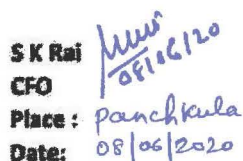 S K Rai
08/06/20
CFO
Place : Panchkula
Date: 08/06/2020